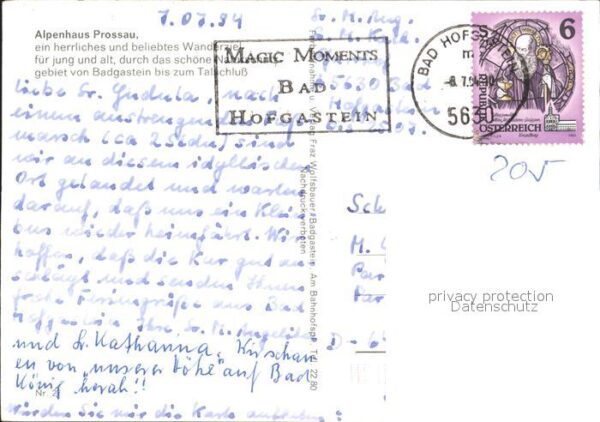 7.07.94
Alpenhaus Prossau,
ein herrliches und beliebtes Wanderziel
für jung und alt, durch das schöne
gebiet von Badgastein bis zum Talschluß
Sr. M. Ang.
5630 Bad
Hofgastein
MAGIC MOMENTS
BAD
HOFGASTEIN
BAD HOFGASTEIN
5630
6
REPUBLIK
ÖSTERREICH
205
Liebe Sr. Gudula, nach
einem anstrengenden
marsch (ca 2 Stdn) sind
wir an diesem idyllischen
Ort gelandet und warten
darauf, daß uns ein Klein
bus wieder heimfährt. Wir
hoffen, daß die Kur gut an
schlägt und senden Ihnen
frohe Feriengrüße aus Bad
Hofgastein Ihre Sr. M. Angelika
und Sr. Katharina. Wir schau
en von "unserer Höhe" auf Bad
König herab!!
Nr. 2
würden Sie mir die Karte aufheben?
Franz Wolfsbauer, Badgastein, Am Bahnhofspl. Tel. 22 80
Nachdruck verboten
Sch
M.
Par
Par
D - 6
privacy protection
Datenschutz